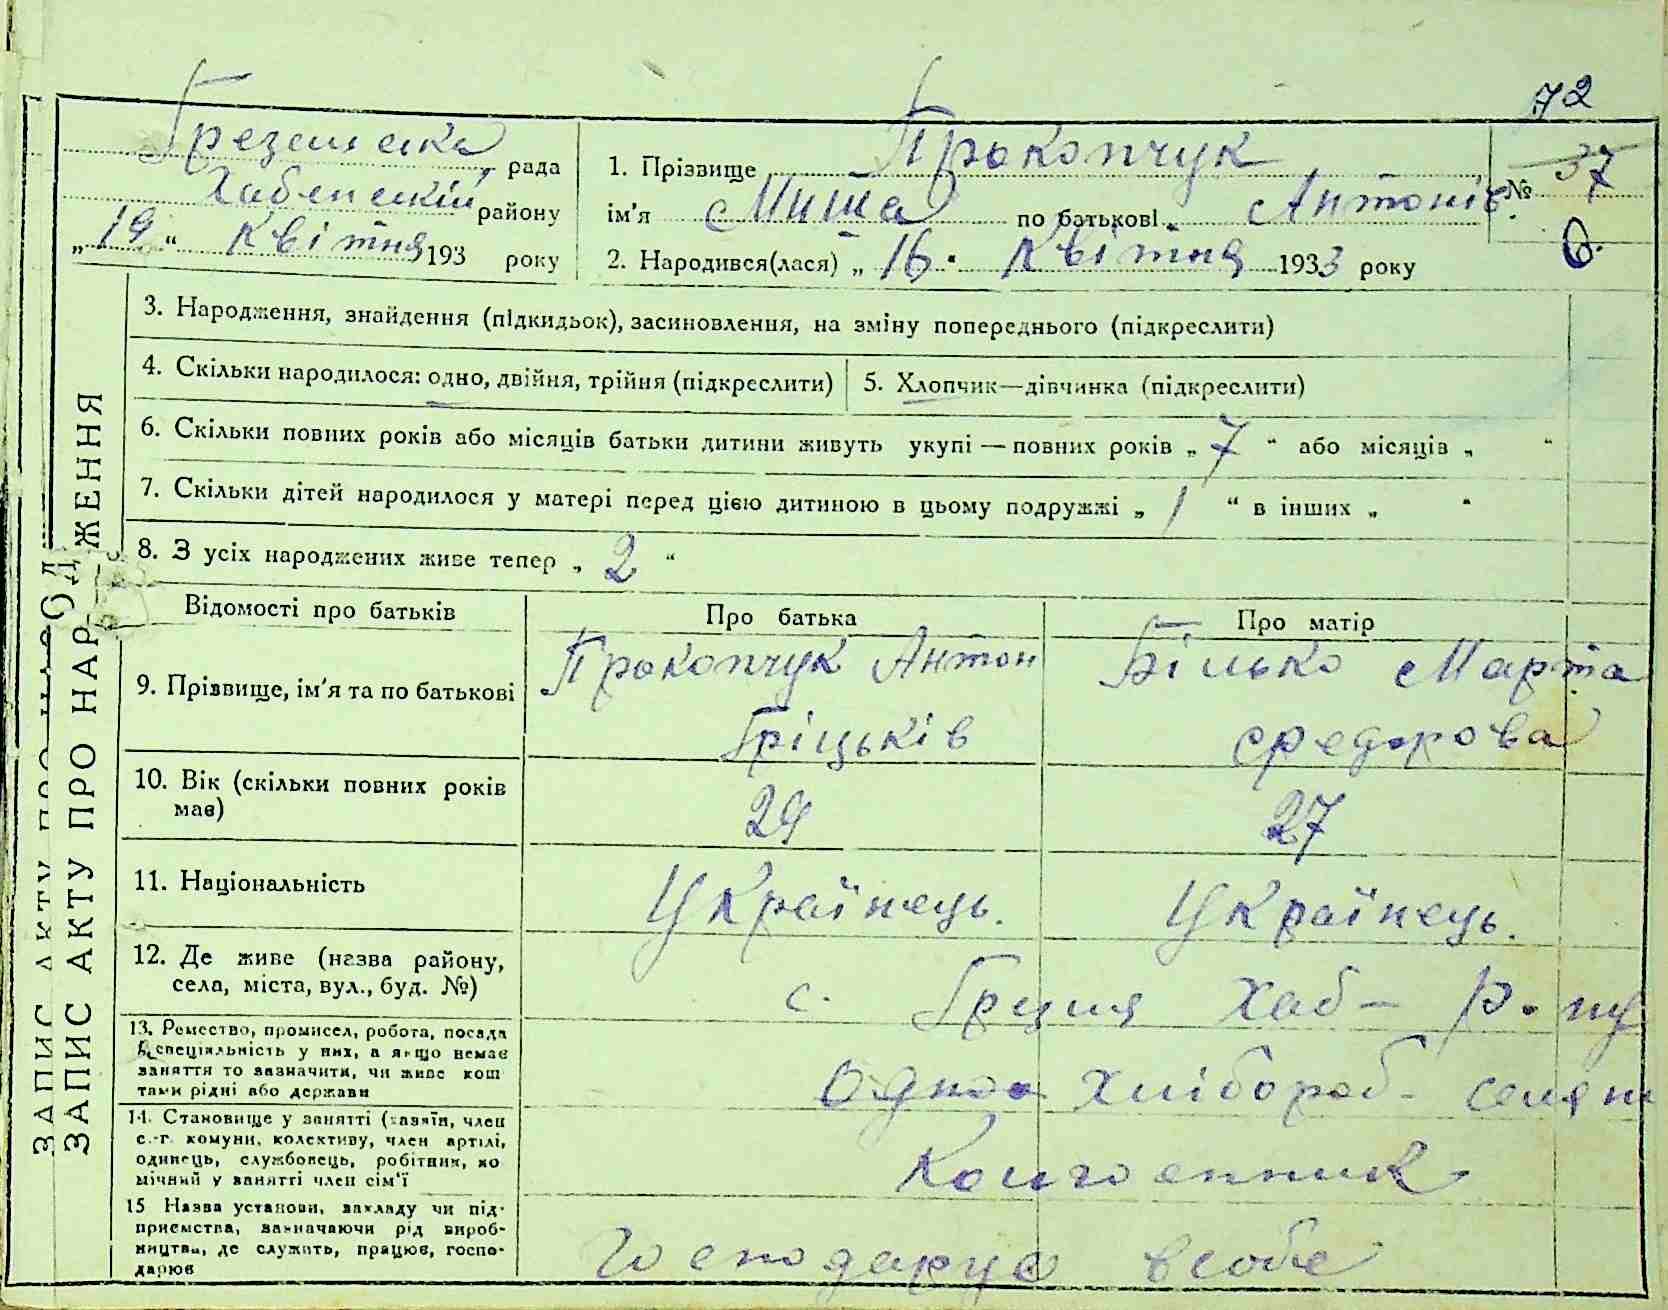 72
Грезлянска рада
Хабенський району
„19“ Квітня 193 року
1. Прізвище Прокопчук
ім'я Миша по батькові Антонів
2. Народився(лася) „16“ Квітня 1933 року
№ 37
6.
ЗАПИС АКТУ ПРО НАРОДЖЕННЯ
3. Народження, знайдення (підкидьок), засиновлення, на зміну попереднього (підкреслити)
4. Скільки народилося: одно, двійня, трійня (підкреслити)
5. Хлопчик—дівчинка (підкреслити)
6. Скільки повних років або місяців батьки дитини живуть укупі — повних років „7“ або місяців „ “
7. Скільки дітей народилося у матері перед цією дитиною в цьому подружжі „1“ в інших „ “
8. З усіх народжених живе тепер „2“
Відомості про батьків
Про батька
Про матір
9. Прізвище, ім'я та по батькові
Прокопчук Антон
Гріцьків
Білько Марта
Федорова
10. Вік (скільки повних років
має)
29
27
11. Національність
Українець.
Українець.
12. Де живе (назва району,
села, міста, вул., буд. №)
с. Хаб- р-ну
13. Ремество, промисел, робота, посада
й спеціяльність у них, а якщо немає
заняття то зазначити, чи живе кош
тами рідні або держави
Хлібороб- селян
14. Становище у занятті (хазяїн, член
с.-г. комуни, колективу, член артілі,
одинець, службовець, робітник, по
мічний у занятті член сім'ї
Колгоспник
15 Назва установи, закладу чи під-
приємства, зазначаючи рід вироб-
ництва, де служить, працює, госпо-
дарює
Господарує в себе